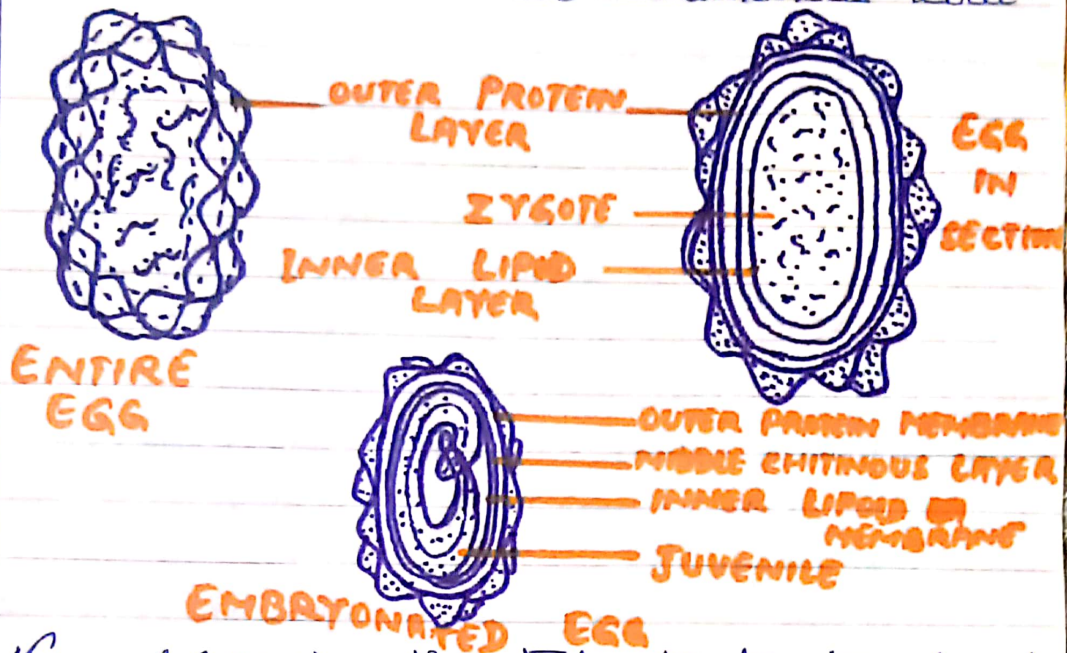 OUTER PROTEIN
LAYER
EGG
IN
SECTION
ZYGOTE
INNER LIPOID
LAYER
ENTIRE
EGG
OUTER PROTEIN MEMBRANE
MIDDLE CHITINOUS LAYER
INNER LIPOID
MEMBRANE
JUVENILE
EMBRYONATED EGG